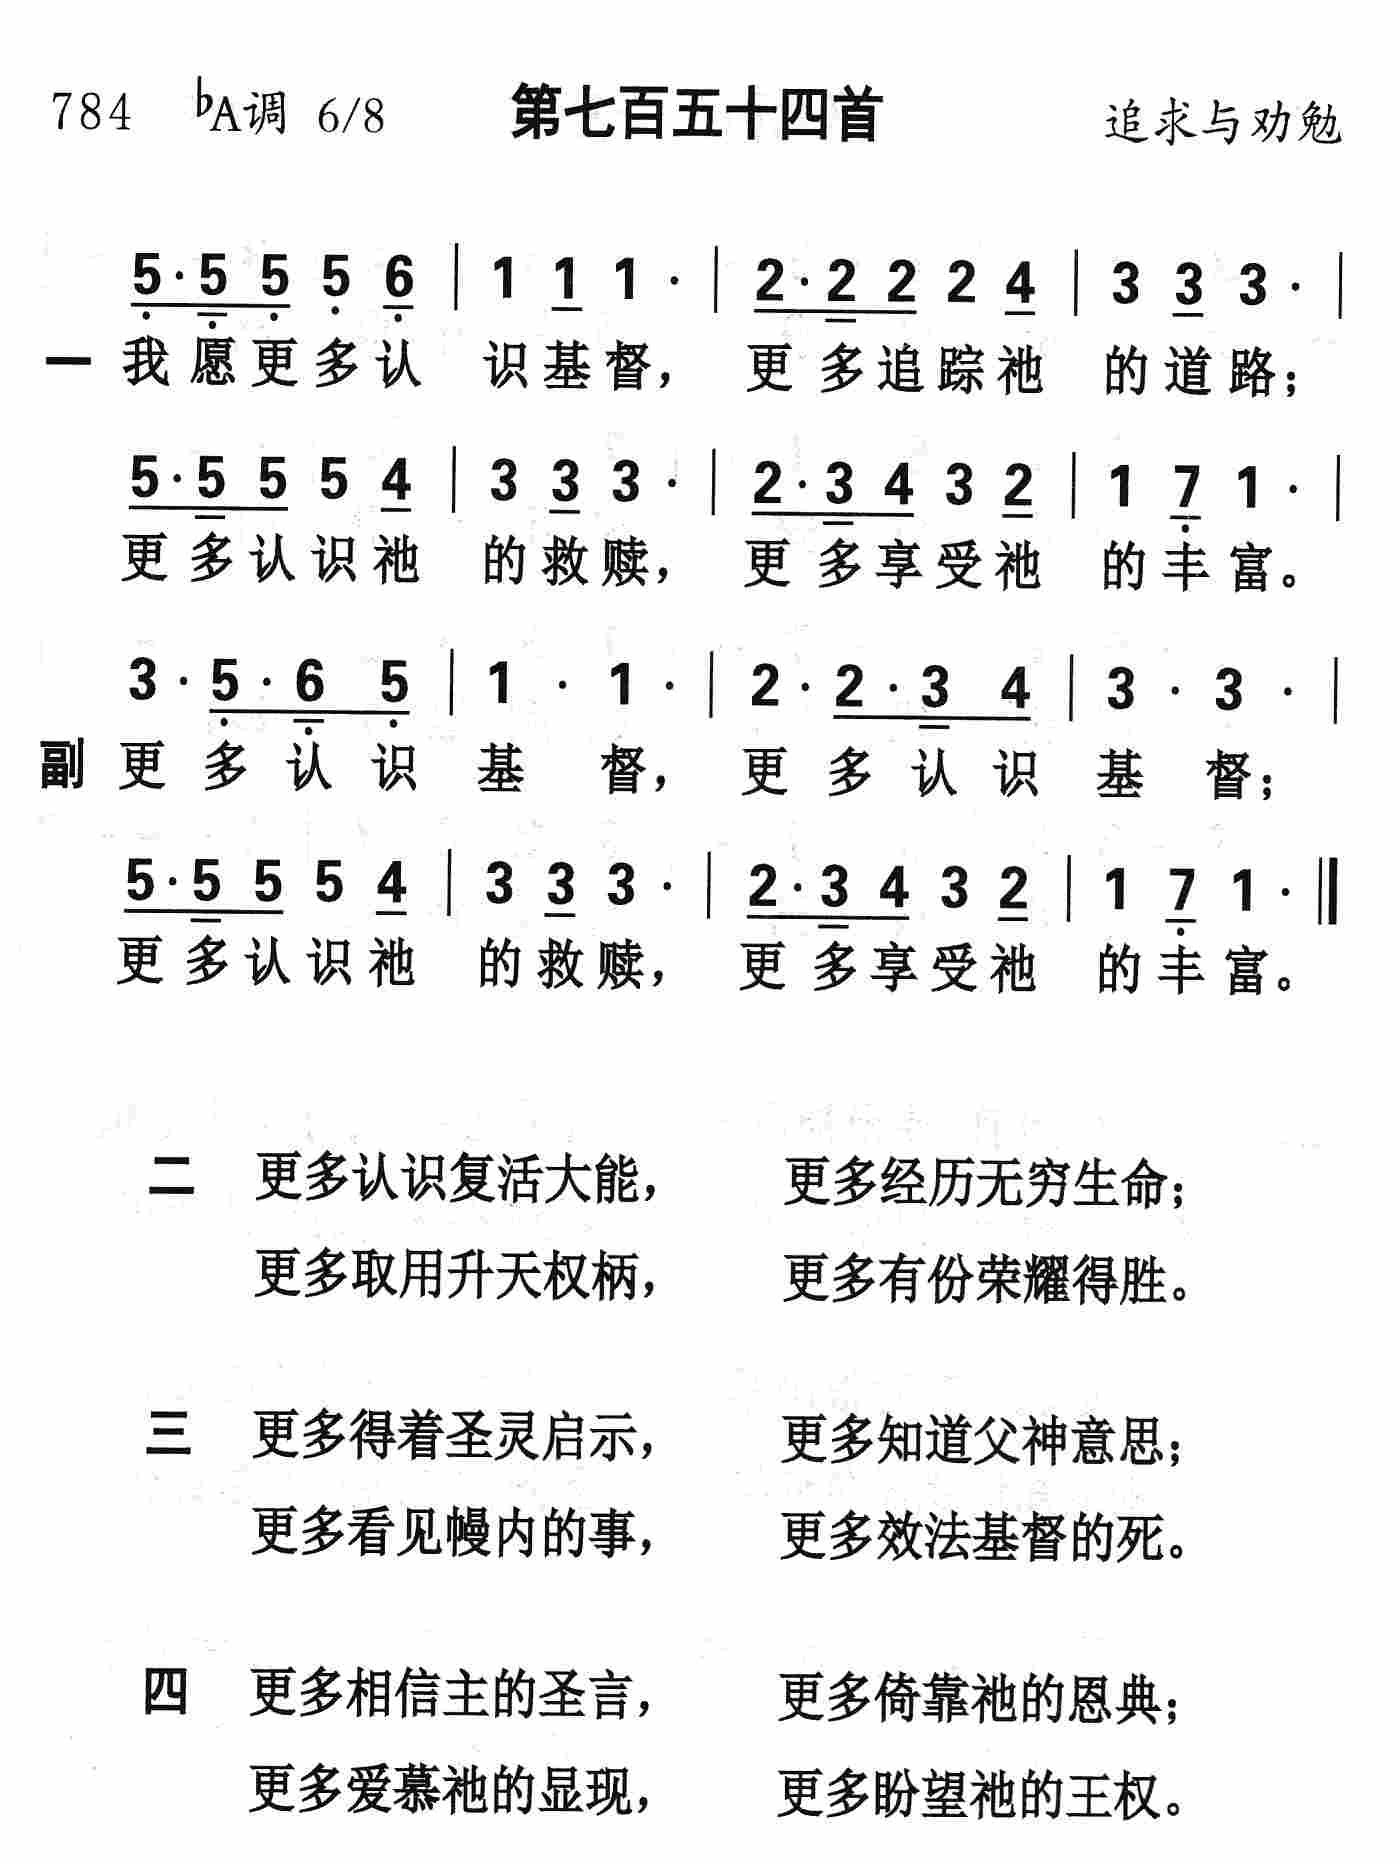 784 ♭A调 6/8 第七百五十四首 追求与劝勉
5·5 5 5 6 | 1 1 1· | 2·2 2 2 4 | 3 3 3· |
一 我愿更多认 识基督， 更多追踪祂 的道路；
5·5 5 5 4 | 3 3 3· | 2·3 4 3 2 | 1 7 1· |
更多认识祂 的救赎， 更多享受祂 的丰富。
3·5·6 5 | 1· 1· | 2·2·3 4 | 3· 3· |
副 更多认识 基督， 更多认识 基督；
5·5 5 5 4 | 3 3 3· | 2·3 4 3 2 | 1 7 1· ‖
更多认识祂 的救赎， 更多享受祂 的丰富。
二 更多认识复活大能， 更多经历无穷生命；
更多取用升天权柄， 更多有份荣耀得胜。
三 更多得着圣灵启示， 更多知道父神意思；
更多看见幔内的事， 更多效法基督的死。
四 更多相信主的圣言， 更多倚靠祂的恩典；
更多爱慕祂的显现， 更多盼望祂的王权。